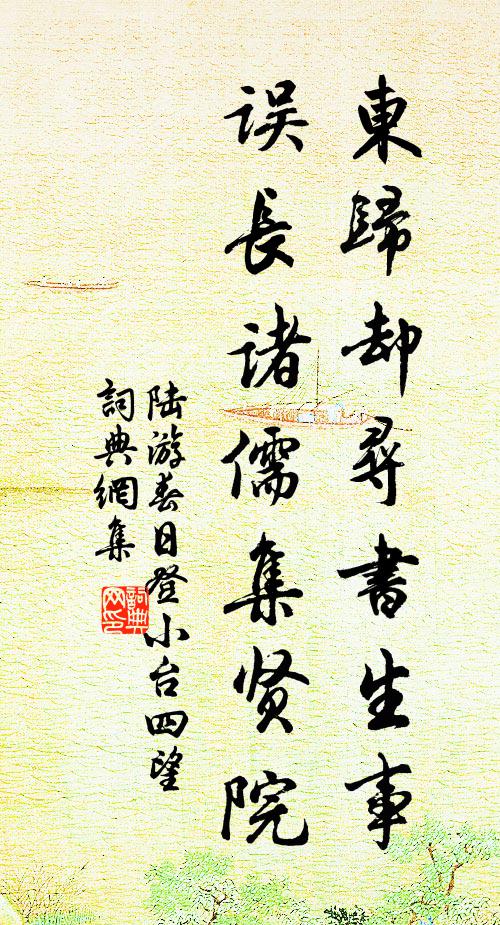 東歸却尋書生事
误長诸儒集贤院
陆游春日登小台四望
詞典網集
詞典
网印